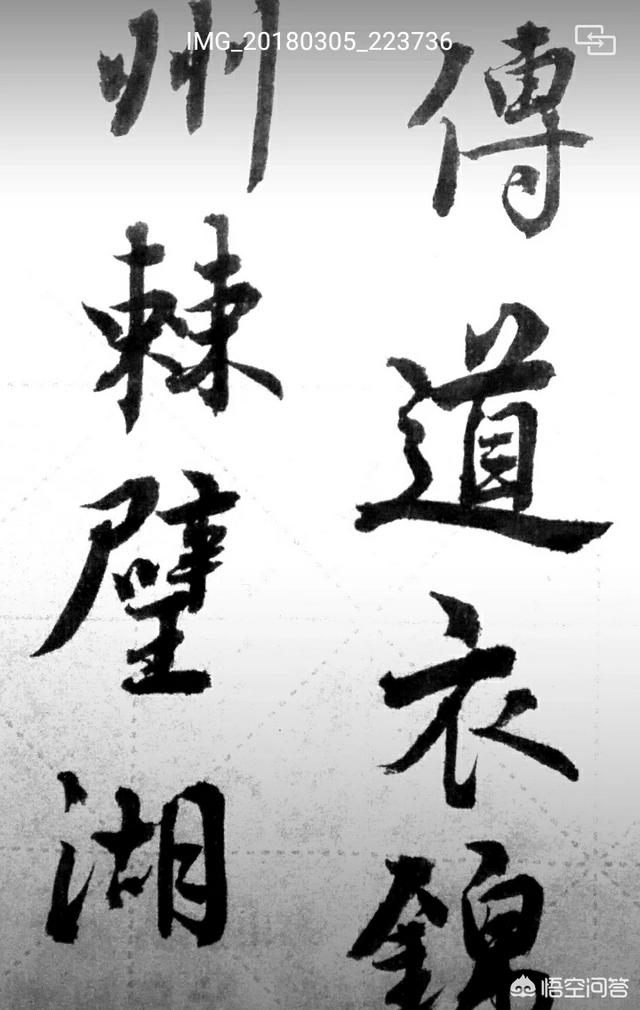 IMG_20180305_223736
傳道衣錦
州棘璧湖
悟空问答